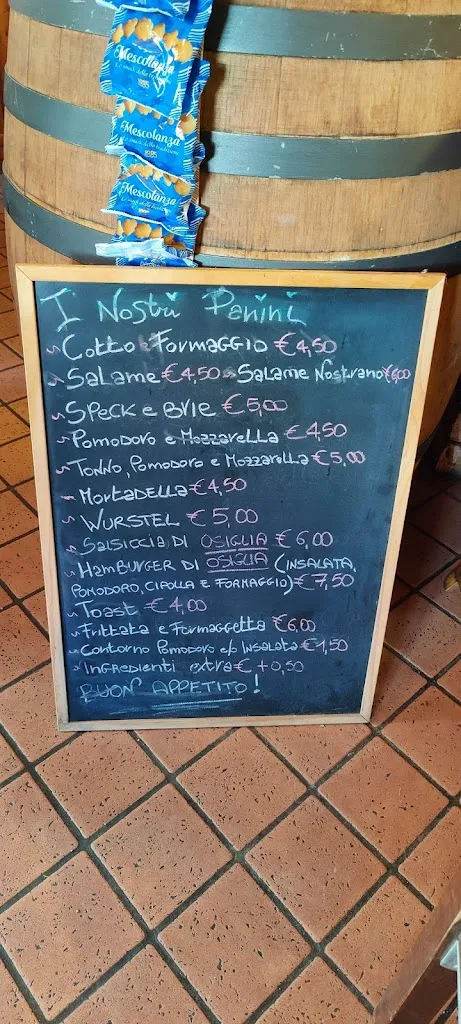 Mescolanza
1985
Mescolanza
1985
Mescolanza
I Nostri Panini
Cotto e Formaggio € 4,50
Salame € 4,50 Salame Nostrano €6,00
Speck e Brie € 5,00
Pomodoro e Mozzarella € 4,50
Tonno, Pomodoro e Mozzarella € 5,00
Mortadella € 4,50
Wurstel € 5,00
Salsiccia di OSIGLIA € 6,00
Hamburger di OSIGLIA (insalata,
pomodoro, cipolla e formaggio) € 7,50
Toast € 4,00
Frittata e Formaggetta €6,00
Contorno Pomodoro e/o Insalata €1,50
Ingredienti extra € +0,50
BUON APPETITO!